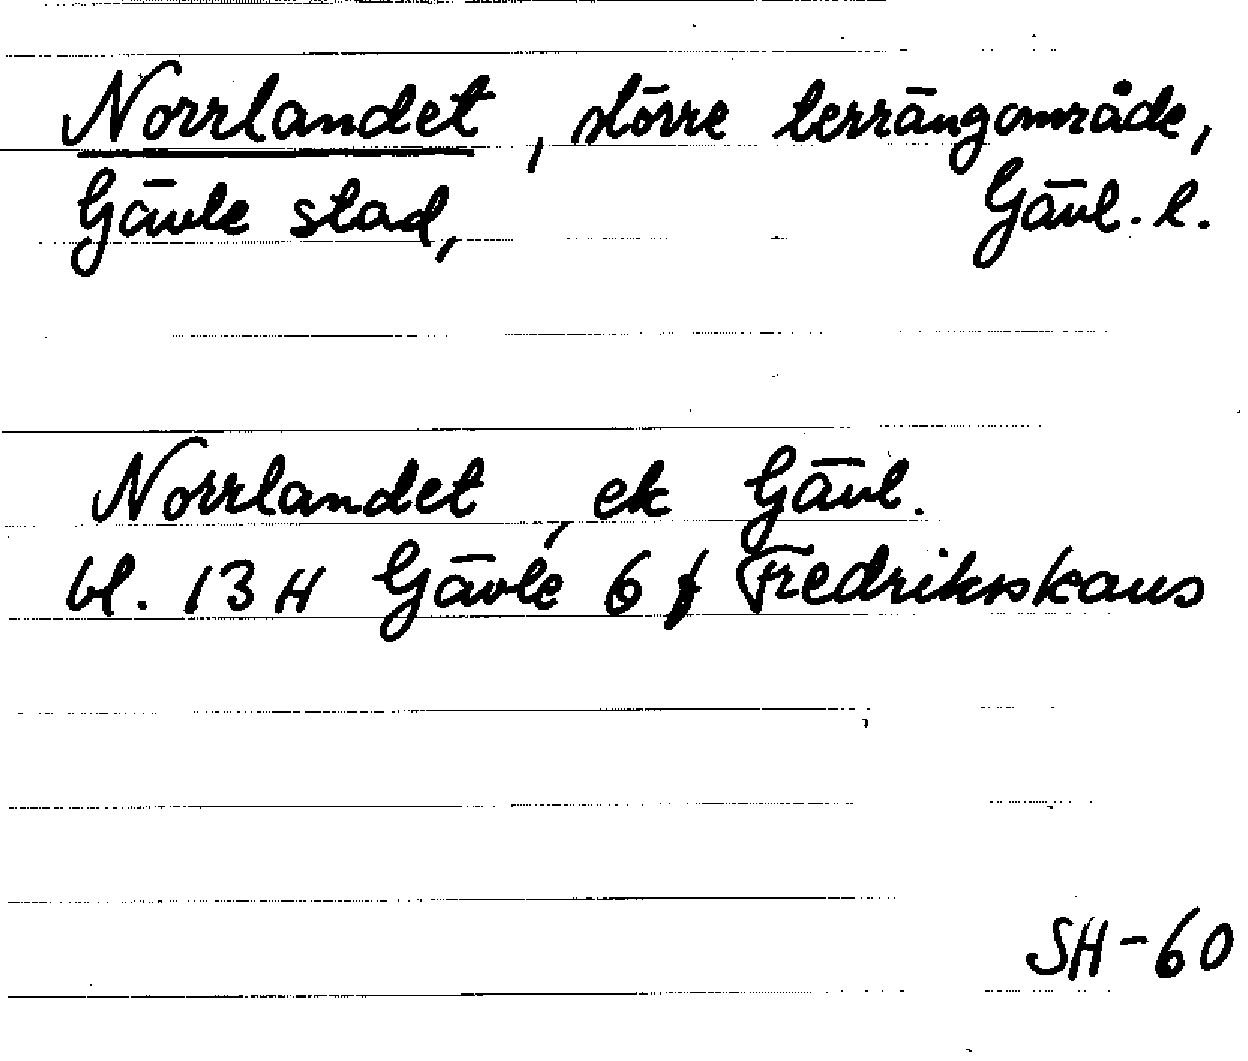 Norrlandet, större terrängområde,
Gävle stad, Gävl. l.
Norrlandet, ek Gävl.
bl. 13 H Gävle 6 f Fredriksskans
SH-60